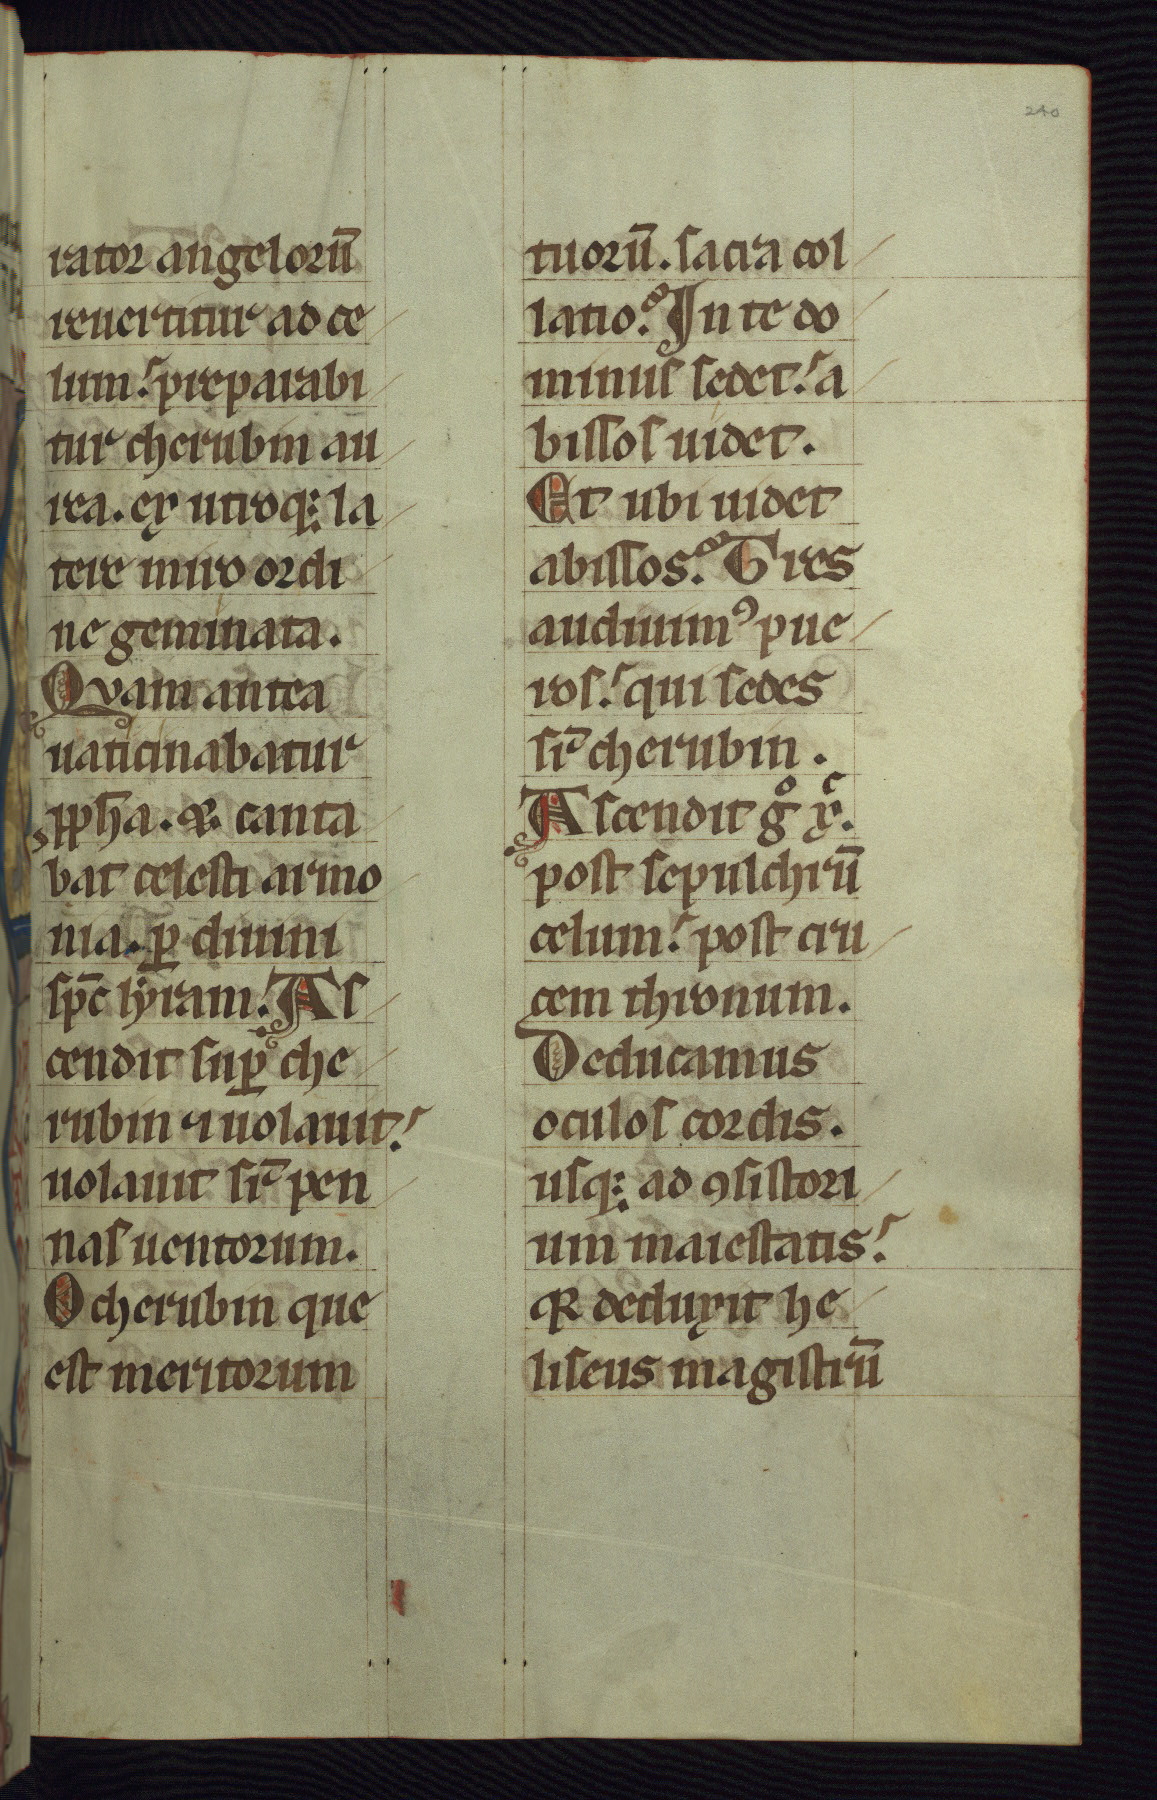 240
rator angeloru̅
reuertitur ad ce
lum. preparabi
tur cherubin au
rea. ex utroq; la
tere miro ordi
ne geminata.
Quam antea
uaticinabatur
ꝓph̅a. & canta
bat celesti armo
nia. ꝑ diuini
sp̅c lẏram. As
cendit suꝑ che
rubin ⁊ uolauit.
uolauit sr̅ pen
nas uentorum.
O cherubin que
est meritorum
tuoru̅. sacra col
latio. In te do
minus sedet. a
bissos uidet.
Et ubi uidet
abissos. Tres
audiuimꝰ pue
ros. qui sedes
sr̅ cherubin.
Ascendit gͦ xͨ.
post sepulchru̅
celum. post cru
cem thronum.
Deducamus
oculos cordis.
usq; ad ꝯsistori
um maiestatis.
qr deduxit he
liseus magistru̅